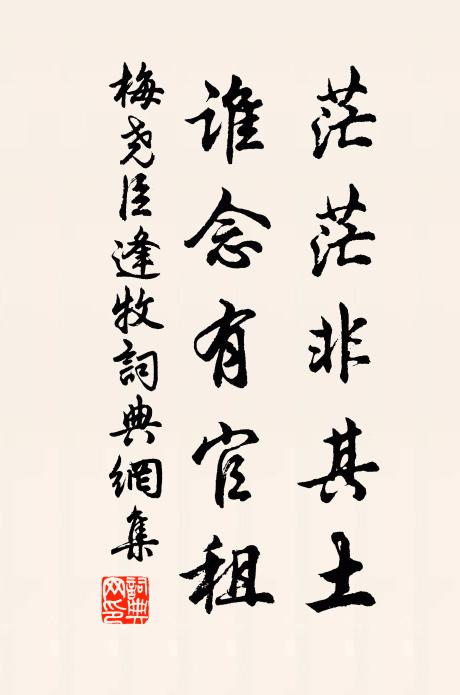 茫茫非其土
谁念有官租
梅尧臣逢牧詞典網集
詞典網印